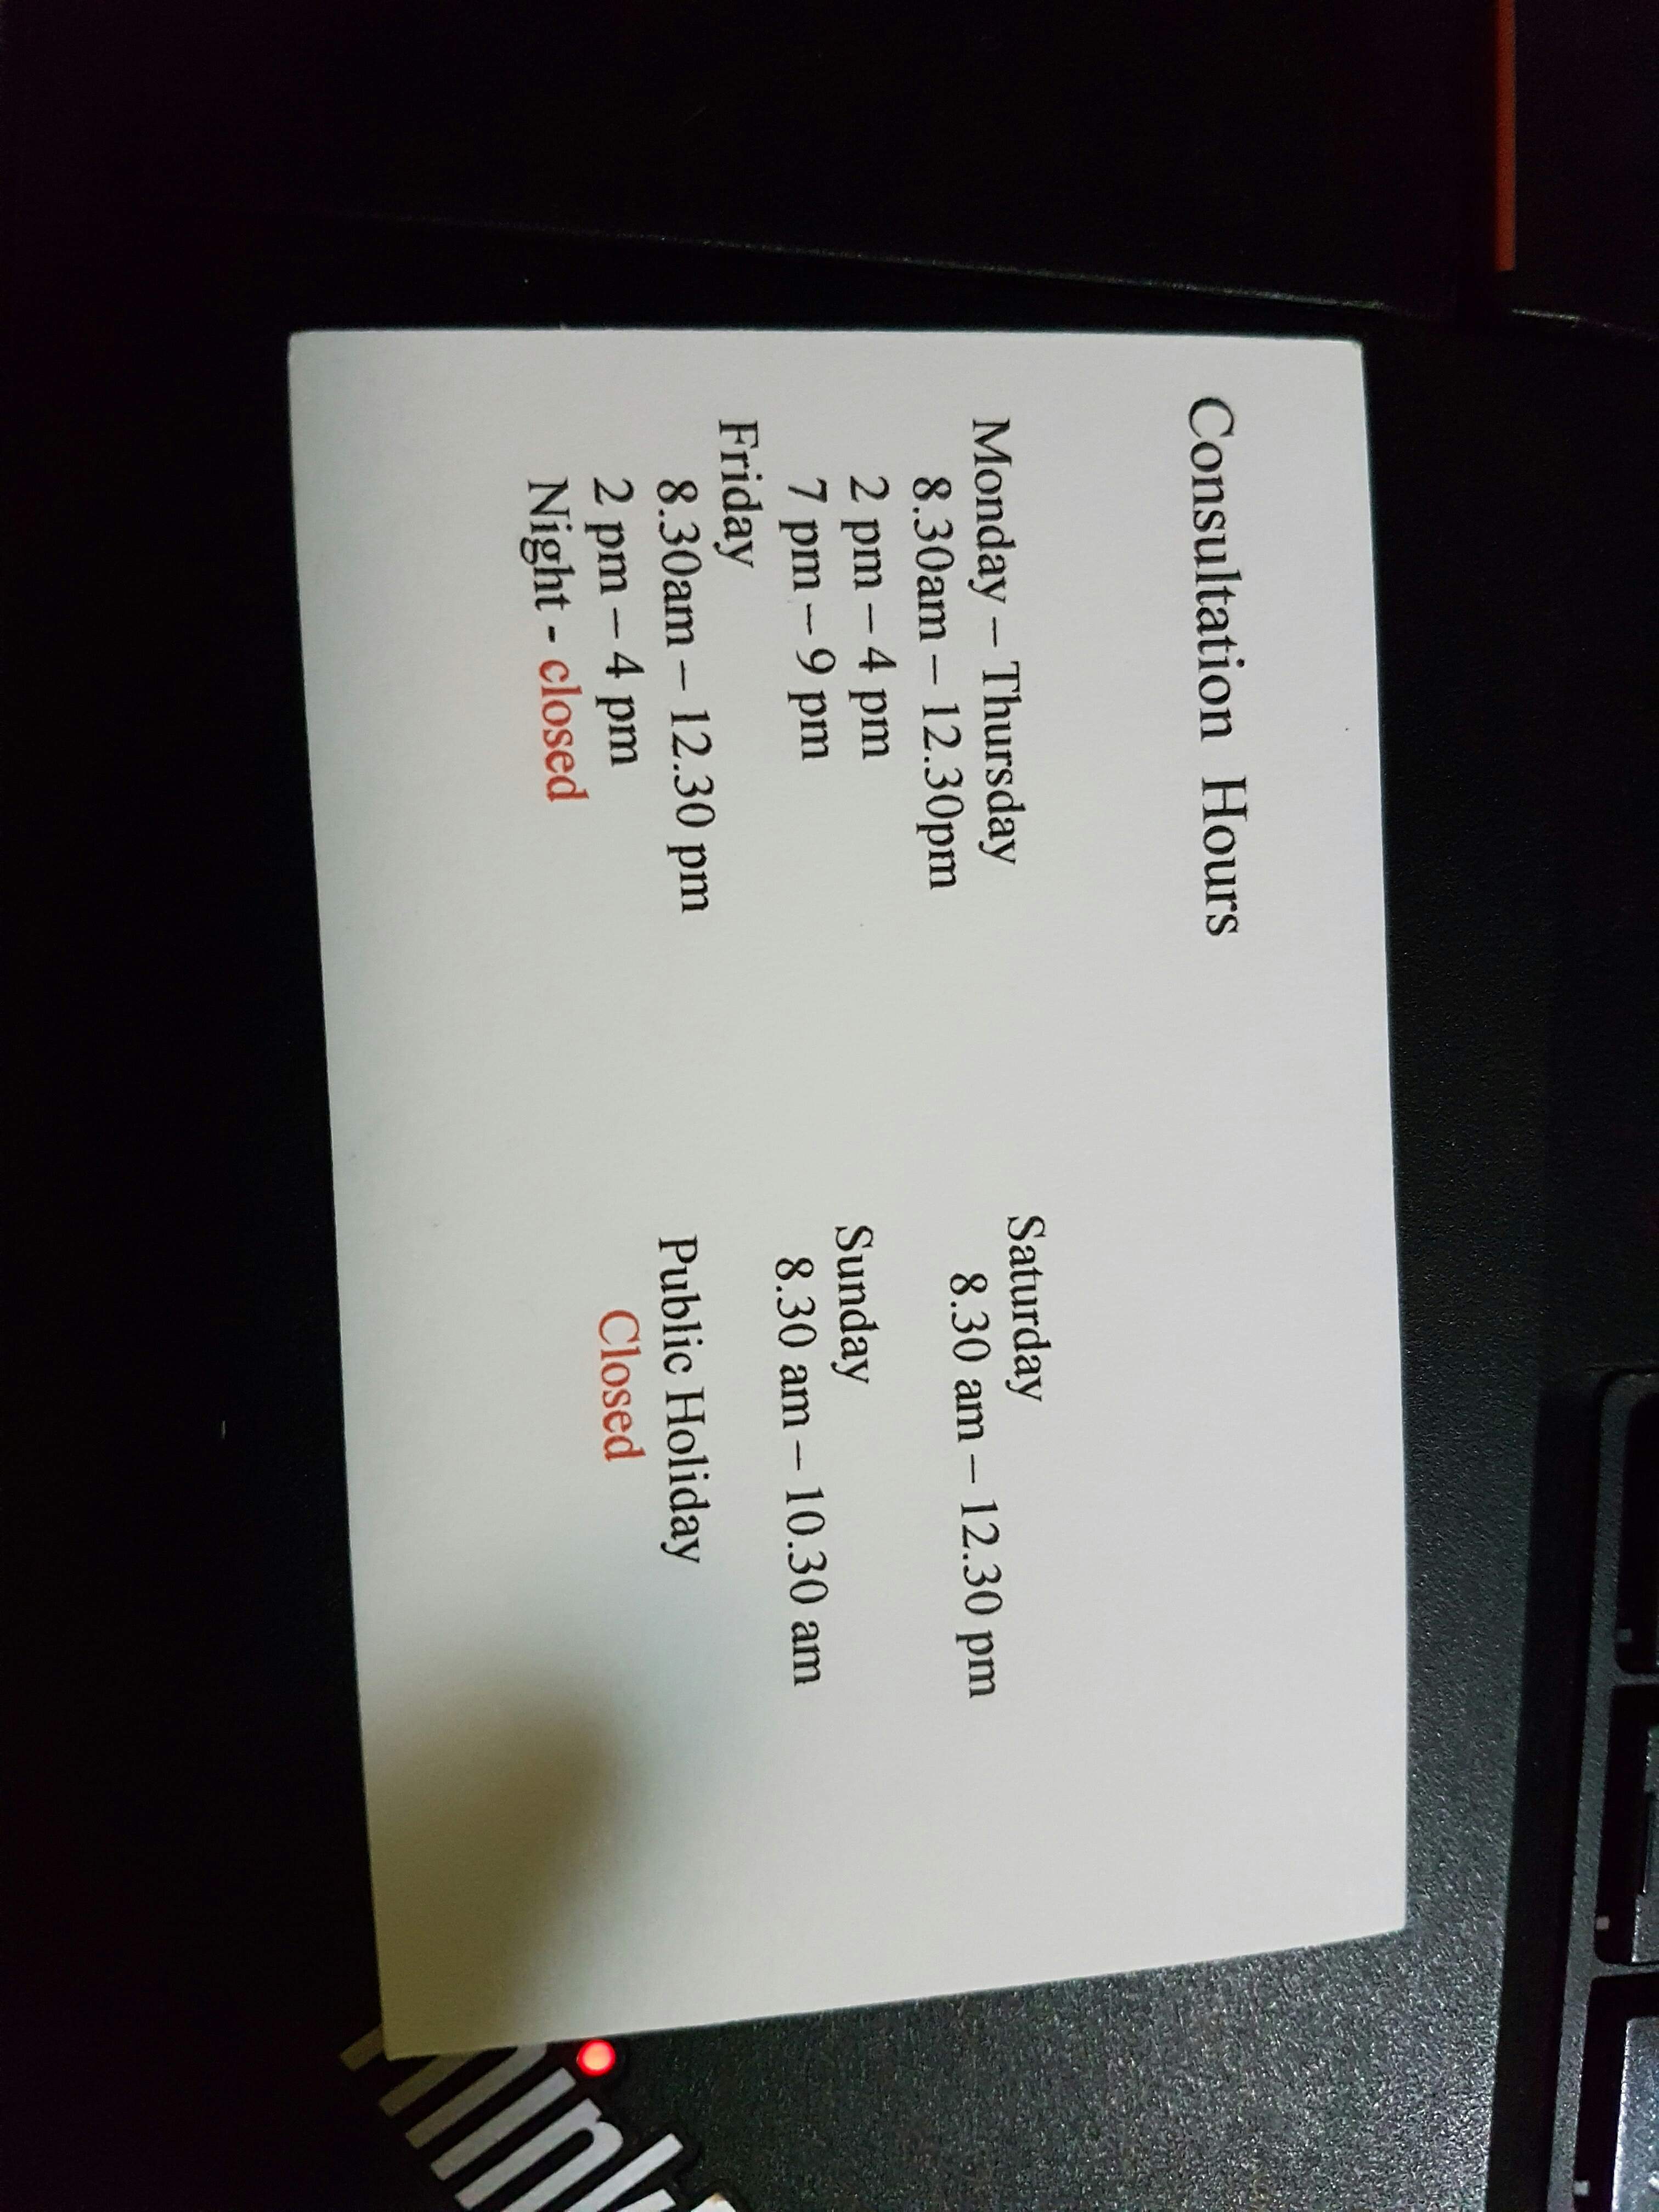 Consultation Hours
Monday – Thursday
8.30am – 12.30pm
2 pm – 4 pm
7 pm – 9 pm
Friday
8.30am – 12.30 pm
2 pm – 4 pm
Night - closed
Saturday
8.30 am – 12.30 pm
Sunday
8.30 am – 10.30 am
Public Holiday
Closed